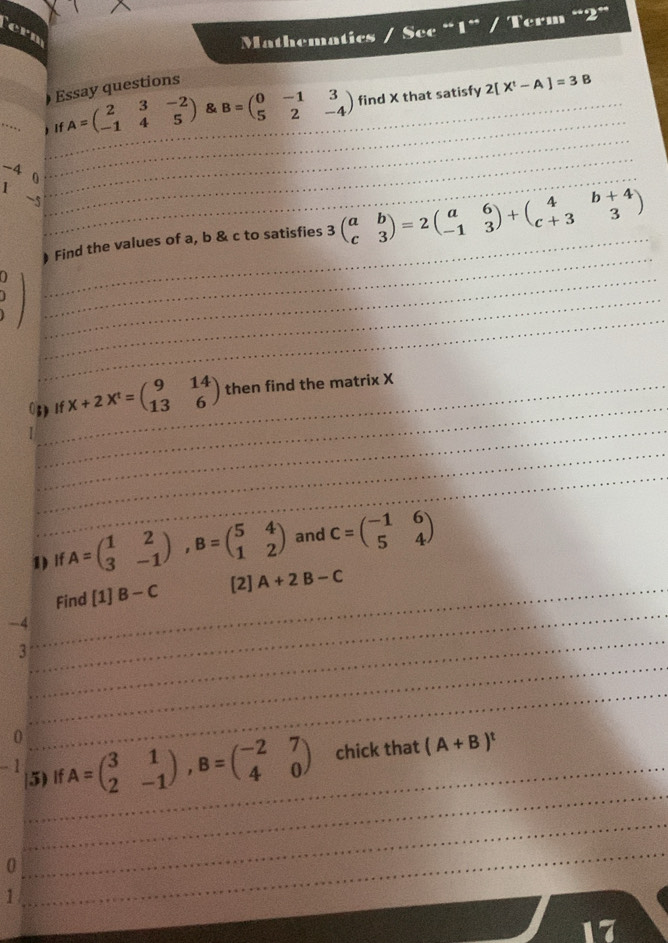 Term
Mathematics / Sec "1" / Term "2"
) Essay questions
) If A = (2 3 −2
−1 4 5) & B = (0 −1 3
5 2 −4) find X that satisfy 2[ Xᵗ − A ] = 3 B
−4 0
1 −5
) Find the values of a, b & c to satisfies 3 (a b
c 3) = 2 (a 6
−1 3) + (4 b + 4
c + 3 3)
3) If X + 2 Xᵗ = (9 14
13 6) then find the matrix X
1) If A = (1 2
3 −1) , B = (5 4
1 2) and C = (−1 6
5 4)
Find [1] B − C [2] A + 2 B − C
−4
3
0
−1
5) If A = (3 1
2 −1) , B = (−2 7
4 0) chick that ( A + B )ᵗ
0
1
17